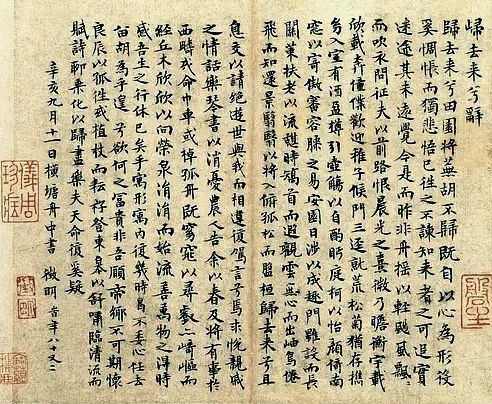 歸去來兮辭
歸去來兮田園將蕪胡不歸既自以心為形役
奚惆悵而獨悲悟已往之不諫知來者之可追實
迷途其未遠覺今是而昨非舟搖以輕颺風飄〻
而吹衣問征夫以前路恨晨光之熹微乃瞻衡宇載
欣載奔僮僕歡迎稚子候門三逕就荒松菊猶存攜
幼入室有酒盈樽引壺觴以自酌眄庭柯以怡顏倚南
窓以寄傲審容膝之易安園日涉以成趣門雖設而長
關策扶老以流憩時矯首而遐觀雲無心而出岫鳥倦
飛而知還景翳〻以將入撫孤松而盤桓歸去來兮且
息交以請絶遊世與我而相遺復駕言兮焉求悅親戚
之情話樂琴書以消憂農人告余以春及將有事於
西疇或命巾車或棹孤舟既窈窕以尋壑亦崎嶇而
經丘木欣欣以向榮泉涓〻而始流善萬物之得時
感吾生之行休已矣乎寓形寓內復幾時曷不委心任去
留胡為乎遑〻兮欲何之富貴非吾願帝鄉不可期懷
良辰以孤往或植杖而耘耔登東皋以舒嘯臨清流而
賦詩聊乘化以歸盡樂夫天命復奚疑
辛亥九月十一日橫塘舟中書 徵明 時年八十又二